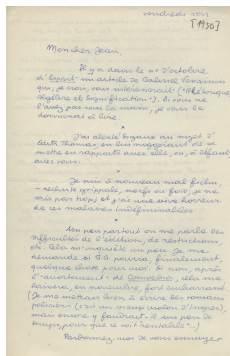 vendredi soir
[1950]
Mon cher Jean,
Il y a dans le n° d'octobre
d'Esprit un article de Calorie
qui, je crois, vous intéresserait ("Rhétorique
algèbre et signification"). Si vous ne
l'avez pas sous la main, je vous le
donnerai à lire.
*
J'ai alerté au sujet d'
Edith Thomas, en lui suggérant de se
mettre en rapports avec elle, ou, à défaut,
avec vous.
*
Je suis à nouveau mal fichu,
- rechute grippale, morfu ou foie, je ne
sais pas trop, et j'ai une vive horreur
de ces malaises indéfinissables
*
Un peu partout on me parle des
difficultés de l'édition, de restrictions,
etc. Cela m'inquiète un peu. Je me
demande si G.G. pourra, finalement,
quelque chose pour moi. Si non, après
l'avortement de, cela me
laissera, en novembre, fort embarrassé.
(Je me mettrais bien à écrire des romans
policiers (c'est une occupation d'ingres),
mais encore y faudrait-il un peu de
temps, pour que ce soit rentable...)
Pardonnez-moi de vous ennuyer